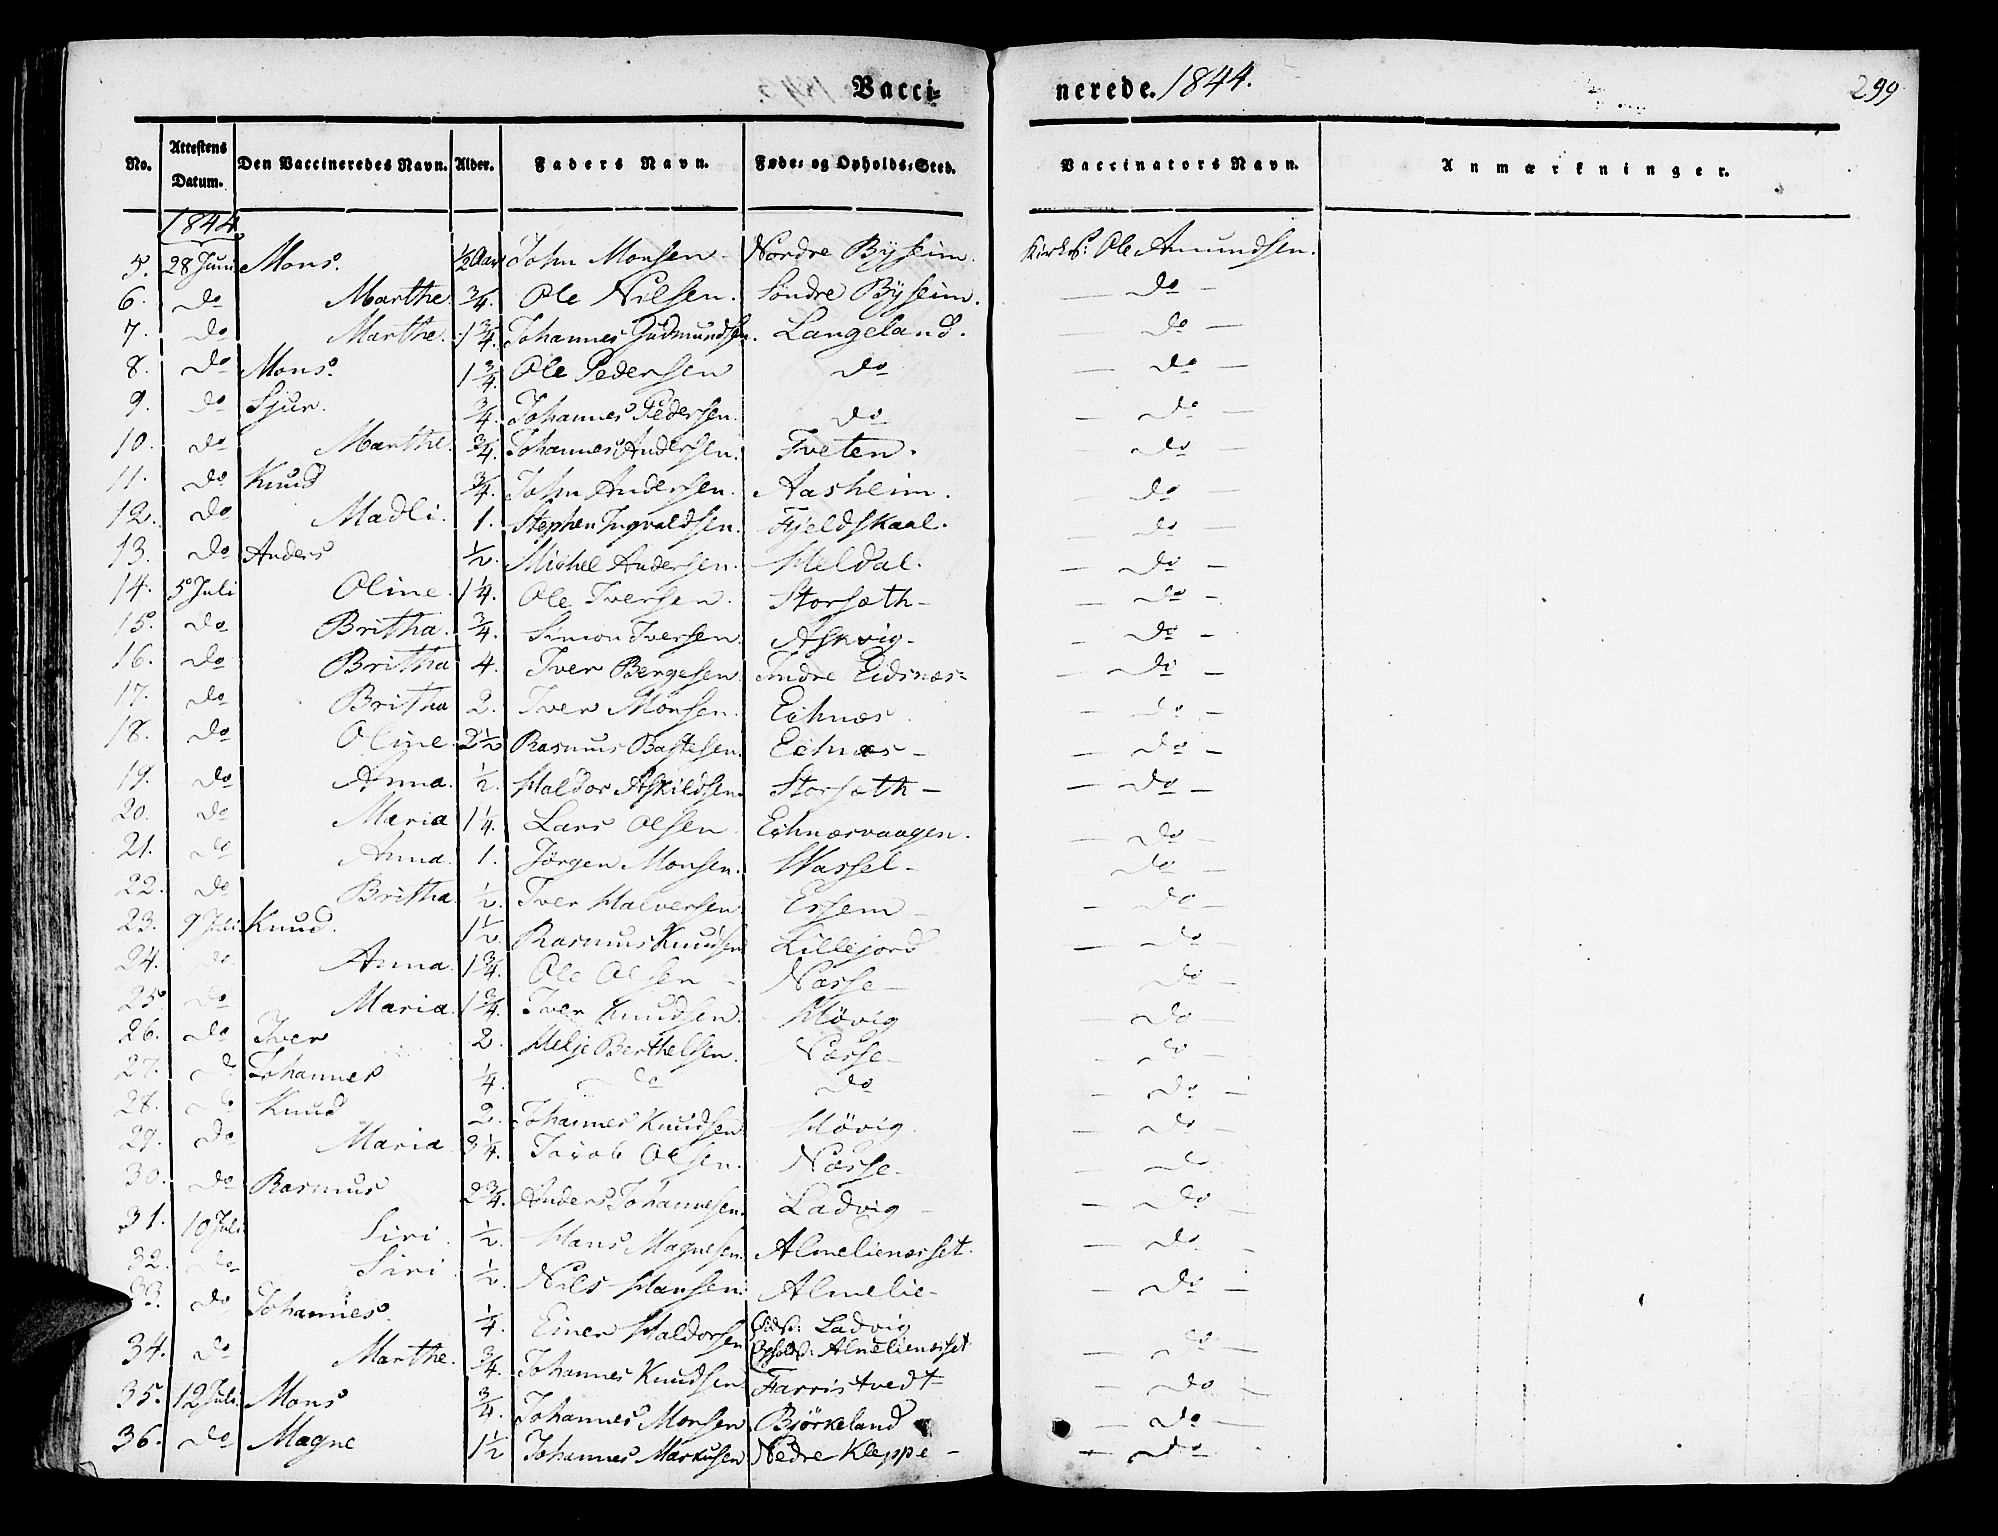 Vacci-nerede. 1844. 299
No. Attestens Datum. Den Vaccineredes Navn. Alder. Faders Navn. Føde- og Opholds-Sted. Vaccinators Navn. Anmærkninger.
1844
5. 28 Juni Mons. ½ Aar John Monsen Nordre Bysheim. Kirkes: Ole Amundsen.
6. do Marthe. ¾. Ole Nilsen. Søndre Bysheim. — do —
7. do Marthe. 1¾. Johannes Gudmundsen. Langeland. — do —
8. do Mons. 1¾. Ole Pedersen do — do —
9. do Sjur. ¾. Johannes Pedersen. do — do —
10. do Marthe. ¾. Johannes Andersen. Tveten. — do —
11. do Knud ¾. John Andersen. Aasheim. — do —
12. do Madli. 1. Stephen Ingvaldsen. Fjeldskaal. — do —
13. do Anders ½. Michel Andersen. Heldal. — do —
14. 5 Juli Oline. 1¼. Ole Iversen. Storsæth — do —
15. do Britha. ¾. Simon Iversen. Askvig — do —
16. do Britha 4. Iver Bergesen. Indre Eidsnæs — do —
17. do Britha 2. Iver Monsen. Eihnæs — do —
18. do Oline. 2½ Rasmus Bastesen. Eihnæs — do —
19. do Anna. ½. Haldor Askildsen. Storsæth — do —
20. do Maria 1¼. Lars Olsen Eihnæsvaagen. — do —
21. do Anna. 1. Jörgen Monsen. Hassel — do —
22. do Britha. ½. Iver Halversen. Essem — do —
23. 9 Juli. Knud. 1½. Rasmus Knudsen Lillejord — do —
24. do Anna. 1¾. Ole Olsen — Næsse — do —
25. do Maria. 1¾. Iver Knudsen. Hövig — do —
26. do Iver 2. Helje Berthelsen. Næsse — do —
27. do Johannes ¼. do do — do —
28. do Knud 2. Johannes Knudsen Hövig. — do —
29. do Maria 3¼. Jacob Olsen. Næsse — do —
30. do Rasmus 2¾. Anders Johannesen. Ladvig — do —
31. 10 Juli Siri. ½. Hans Magnesen. Almelienæsset. — do —
32. do Siri ½. Nils Hansen. Almelie — do —
33. do Johannes. ¼. Einer Haldorsen Fødst: Ladvig
Opholdst: Almelienæsset — do —
34. do Marthe. ¾. Johannes Knudsen Farristvedt — do —
35. 12 Juli. Mons ¾. Johannes Monsen Björkeland — do —
36. do Magne 1½ Johannes Markusen Nedre Kleppe — do